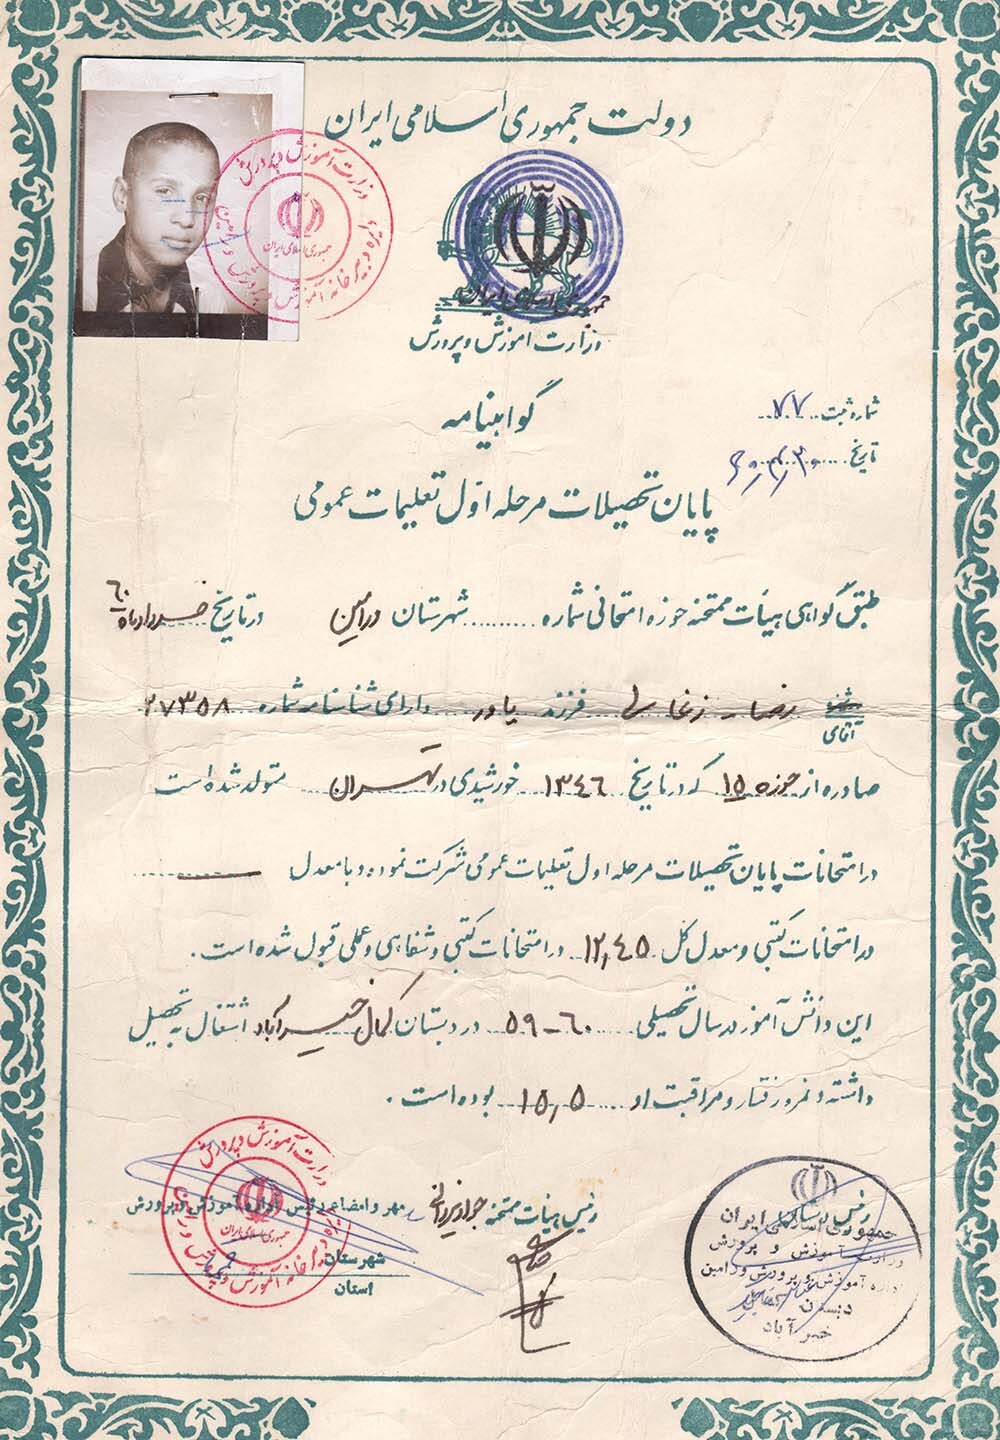 دولت جمهوری اسلامی ایران
جمهوری اسلامی ایران
وزارت آموزش و پرورش
گواهینامه
شماره ثبت ۷۷
تاریخ ۶۰٫۴٫۳۰
پایان تحصیلات مرحله اول تعلیمات عمومی
طبق گواهی هیأت ممتحنه حوزه امتحانی شماره ......... شهرستان ورامین در تاریخ خردادماه ۶۰
آقای رضا زغالی فرزند یاور دارای شناسنامه شماره ۲۷۳۵۸
صادره از حوزه ۱۵ که در تاریخ ۱۳۴۶ خورشیدی در تهران متولد شده است
در امتحانات پایان تحصیلات مرحله اول تعلیمات عمومی شرکت نموده و با معدل ــــ
در امتحانات کتبی و معدل کل ۱۲٫۴۵ در امتحانات کتبی و شفاهی و عملی قبول شده است .
این دانش آموز در سال تحصیلی ۶۰-۵۹ در دبستان کمال خیرآباد اشتغال به تحصیل
داشته و نمره رفتار و مراقبت او ۱۵٫۵ بوده است .
رئیس دبستان
رئیس هیأت ممتحنه
مهر و امضاء رئیس اداره آموزش و پرورش
شهرستان
استان
جمهوری اسلامی ایران
وزارت آموزش و پرورش
اداره آموزش و پرورش ورامین
دبستان
خیر آباد
وزارت آموزش و پرورش
جمهوری اسلامی ایران
وزارت آموزش و پرورش
جمهوری اسلامی ایران